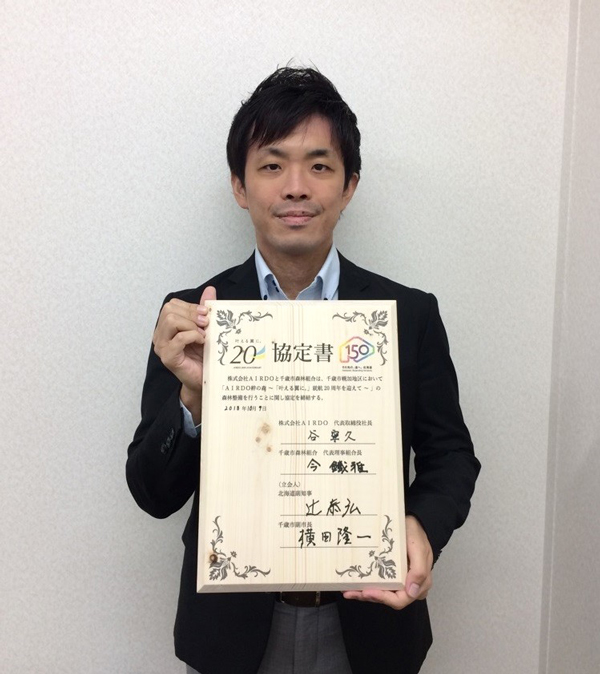 叶える翼に。
20
協定書
150
株式会社AIRDOと千歳市森林組合は、千歳市幌加地区において
「AIRDO絆の森 ～「叶える翼に。」就航20周年を迎えて～」の
森林整備を行うことに関し協定を締結する。
2018年10月9日
株式会社AIRDO 代表取締役社長
谷 寧久
千歳市森林組合 代表理事組合長
今 鐵雅
(立会人)
北海道副知事
辻 泰弘
千歳市副市長
横田隆一